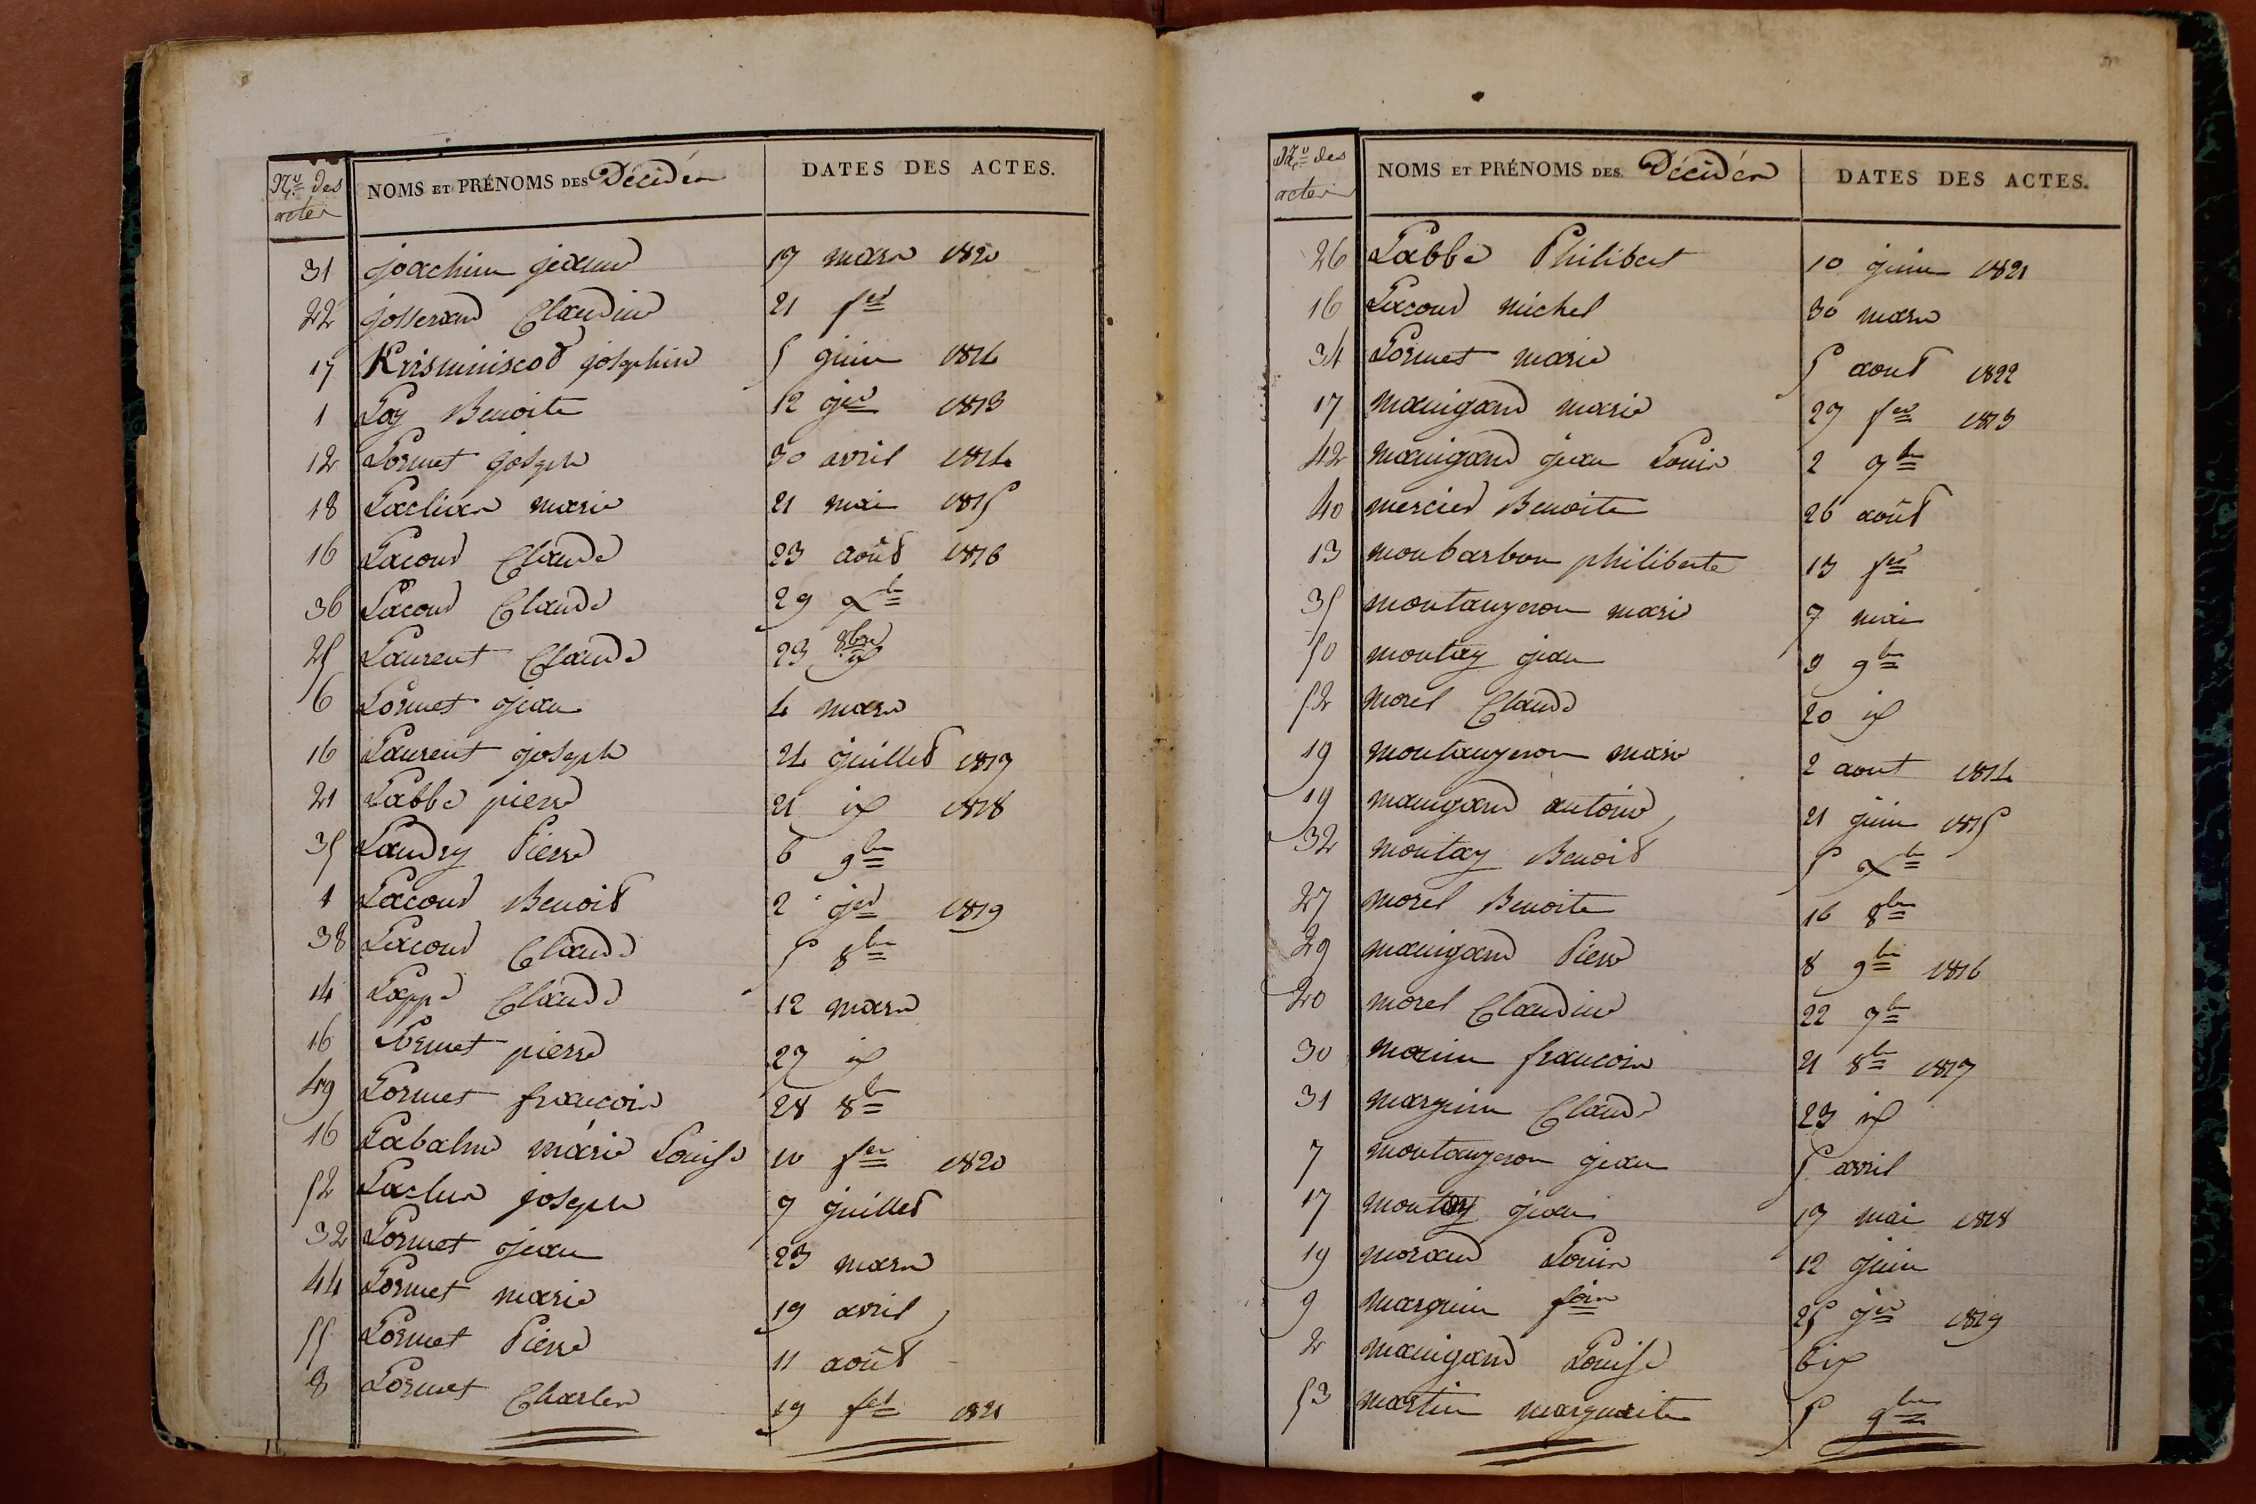 Nos des
actes
NOMS ET PRÉNOMS DES Décédés
DATES DES ACTES.
31 joachim jeanne 17 mars 1820
22 josserand Claudine 21 fer
17 Krisminiscot josephine 5 juin 1814
1 Loy Benoite 12 jer 1813
12 Lornet joseph 30 avril 1814
18 Laclias marie 21 mai 1815
16 Lacour Claude 23 août 1816
36 Lacour Claude 29 Xbre
25 Laurent Claude 23 8bre id
6 Lornet jean 4 mars
16 Laurent joseph 24 juillet 1817
21 Labbe pierre 21 id 1818
35 Landry Pierre 6 9bre
1 Lacour Benoit 2 jer 1819
38 Lacour Claude 5 8bre
14 Lappe Claude 12 mars
16 Lornet pierre 27 id
49 Lornet francois 28 8bre
16 Labalme marie Louise 10 fer 1820
52 Laclus joseph 7 juillet
32 Lornet jean 23 mars
44 Lornet marie 19 avril
55 Lornet Pierre 11 août
8 Lornet Charles 19 fer 1821
Nos des
actes
NOMS ET PRÉNOMS DES Décédés
DATES DES ACTES.
26 Labbe Philibert 10 juin 1821
16 Lacour michel 30 mars
34 Lornet marie 5 aout 1822
17 manigand marie 27 fer 1813
42 manigand jean Louis 2 7bre
40 mercier Benoite 26 août
13 monbarbon philiberte 13 fer
35 montangeron marie 7 mai
50 montay jean 9 9bre
52 morel Claude 20 id
19 montangeron marie 2 aout 1814
19 manigand antoine 21 juin 1815
32 montay Benoit 5 Xbre
27 morel Benoite 16 8bre
29 manigand Pierre 8 9bre 1816
20 morel Claudine 22 7bre
30 marin francois 21 8bre 1817
31 marguin Claude 23 id
7 montangeron jean 5 avril
17 montay jean 17 mai 1818
19 morand Louis 12 juin
9 marguin fois 25 jer 1819
2 manigand Louise 6 id
53 martin marguerite 5 9bre